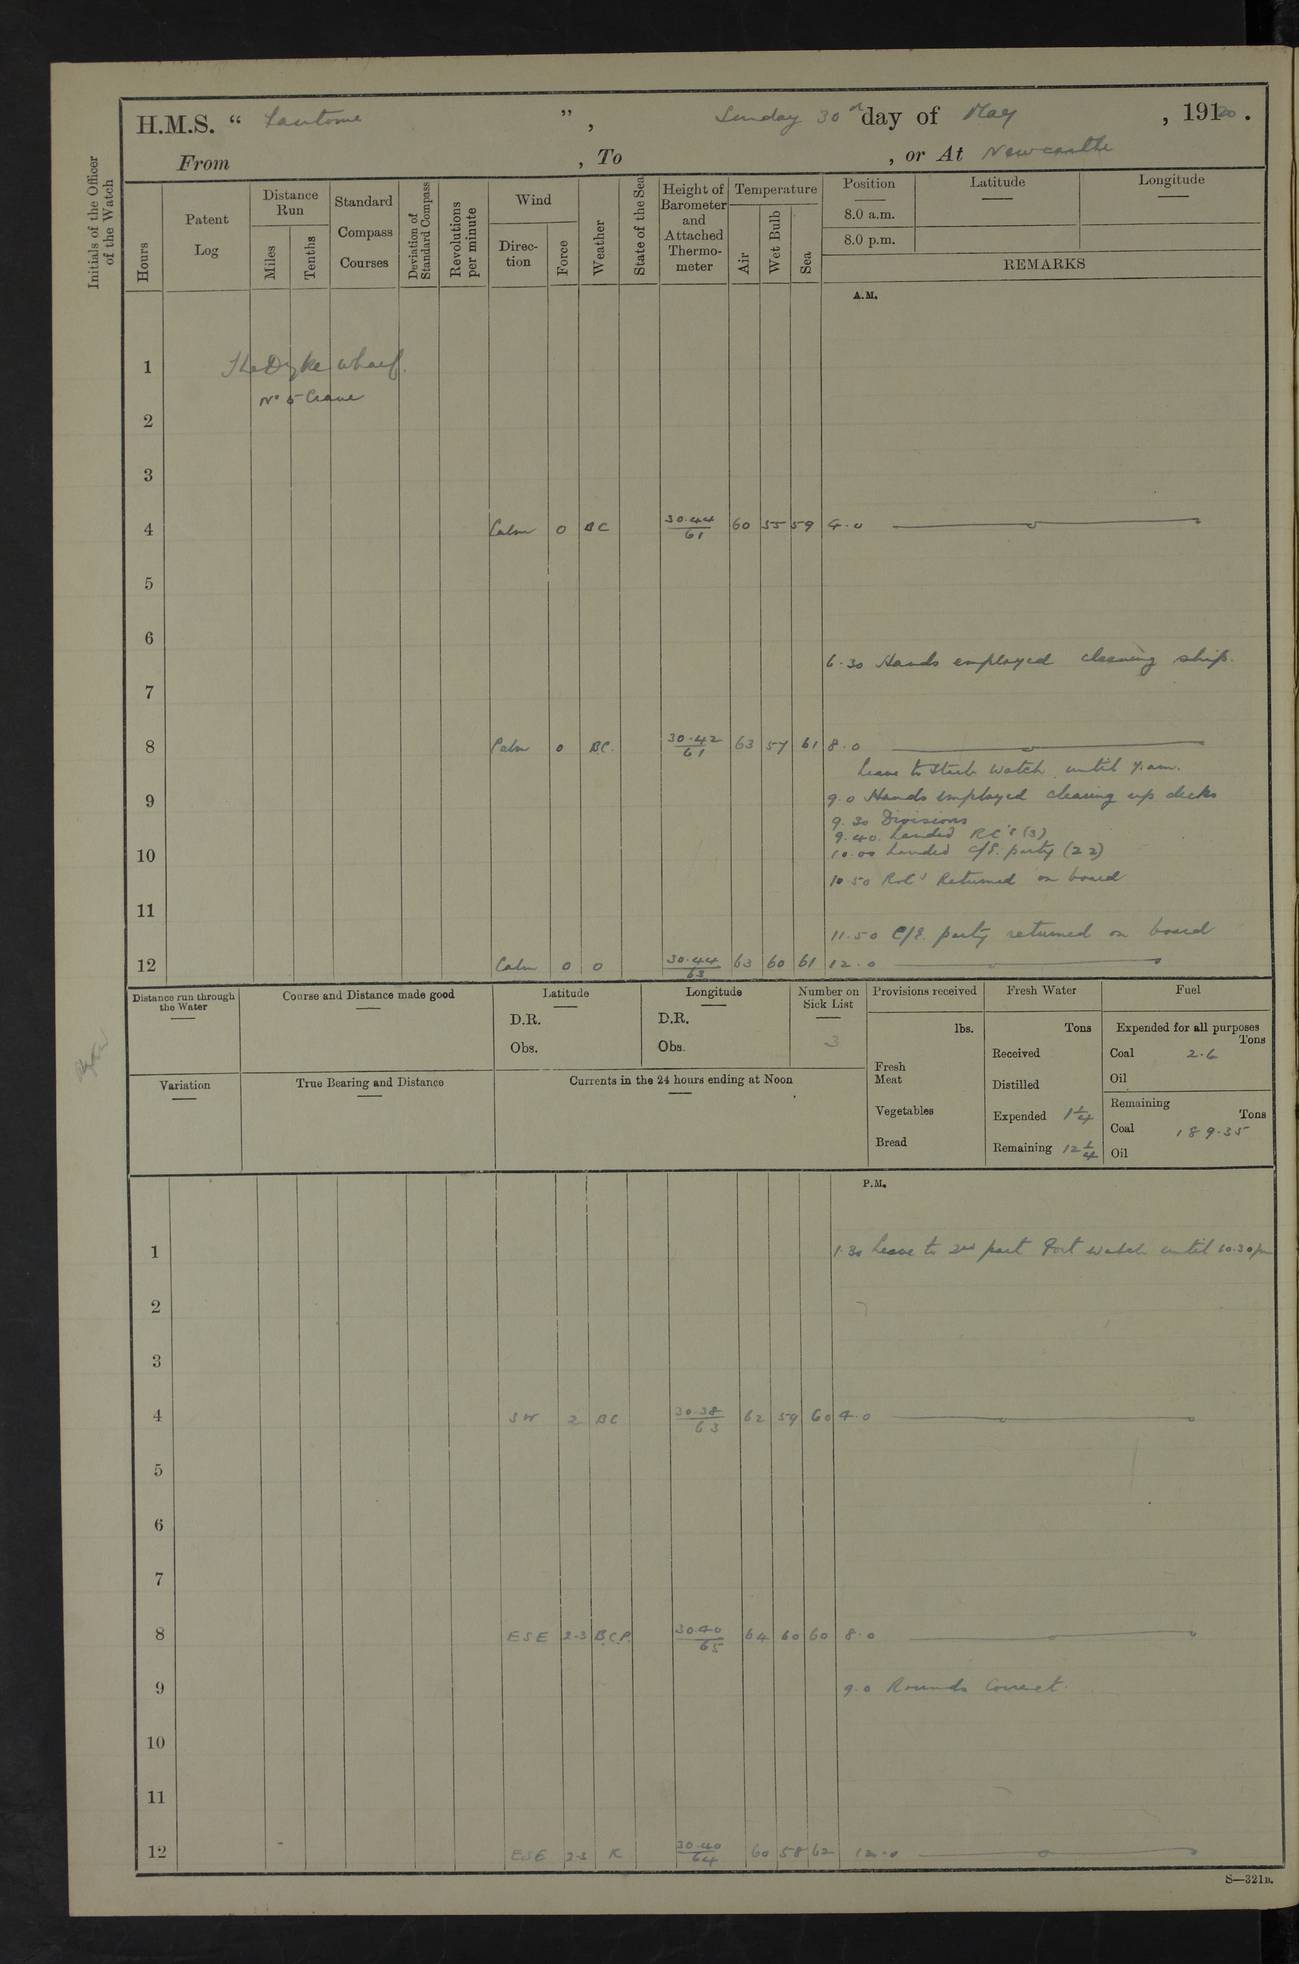 H.M.S. “ Fantome ” , Sunday 30th day of May , 19120 .
From , To , or At Newcastle
Initials of the Officer of the Watch
Hours
Patent Log
Distance Run
Miles
Tenths
Standard Compass Courses
Deviation of Standard Compass
Revolutions per minute
Wind
Direction
Force
Weather
State of the Sea
Height of Barometer and Attached Thermometer
Temperature
Air
Wet Bulb
Sea
Position
Latitude
Longitude
8.0 a.m.
8.0 p.m.
REMARKS
A.M.
1 The Dyke wharf.
No 5 Crane
2
3
4 Calm 0 BC 30.44/61 60 55 59 4.0
5
6
6.30 Hands employed cleaning ship.
7
8 Calm 0 BC. 30.42/61 63 57 61 8.0
Leave to Starb Watch until 7.am.
9
9.0 Hands employed clearing up decks
9.30 Divisions
9.40. Landed RC's (3)
10
10.00 Landed C/E. party (22)
10.50 R.C's Returned on board
11
11.50 C/E. party returned on board
12 Calm 0 0 30.44/63 63 60 61 12.0
Distance run through the Water
Course and Distance made good
Latitude
D.R.
Obs.
Longitude
D.R.
Obs.
Number on Sick List
3
Provisions received
lbs.
Fresh Meat
Vegetables
Bread
Fresh Water
Tons
Received
Distilled
Expended 1 1/4
Remaining 12 1/4
Fuel
Expended for all purposes
Tons
Coal 2.6
Oil
Remaining
Tons
Coal 189.35
Oil
Variation
True Bearing and Distance
Currents in the 24 hours ending at Noon
P.M.
1 1.30 Leave to 2nd part Port watch until 10.30 pm
2
3
4 SW 2 BC 30.38/63 62 59 60 4.0
5
6
7
8 ESE 2-3 B.C.P. 30.40/65 64 60 60 8.0
9 9.0 Rounds Correct.
10
11
12 ESE 2-3 R 30.40/64 60 58 62 12.0
S—321B.